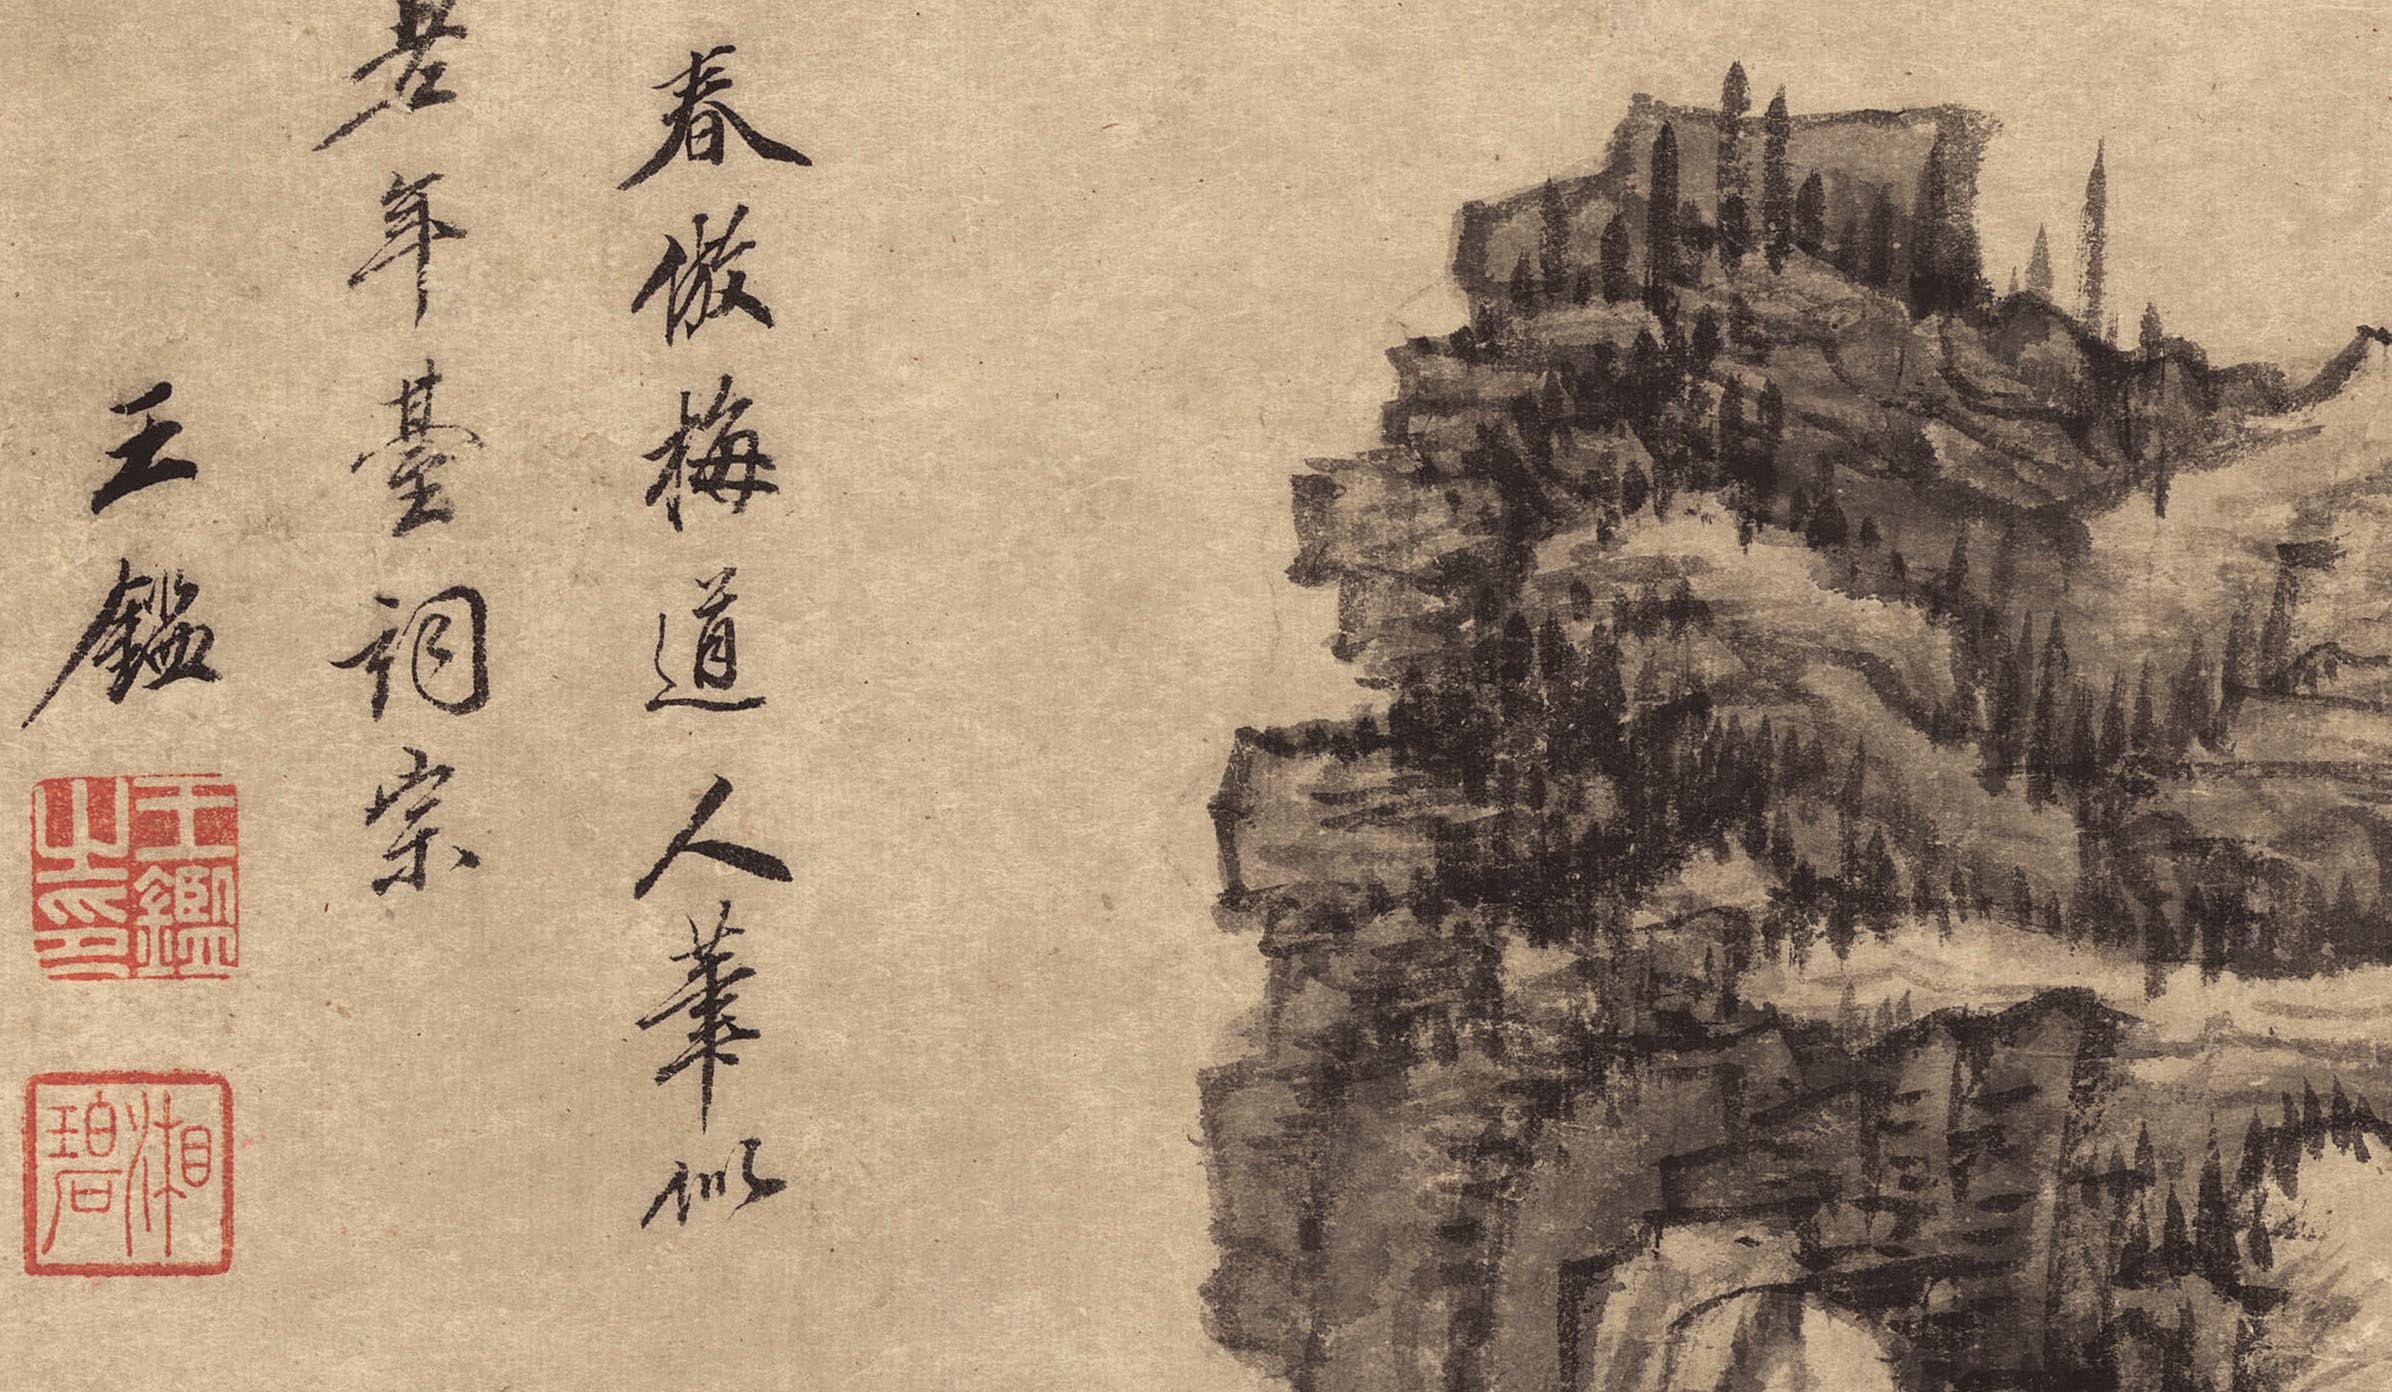 春倣梅道人筆似
若年臺詞宗
王鑑
王鑑之印
湘碧